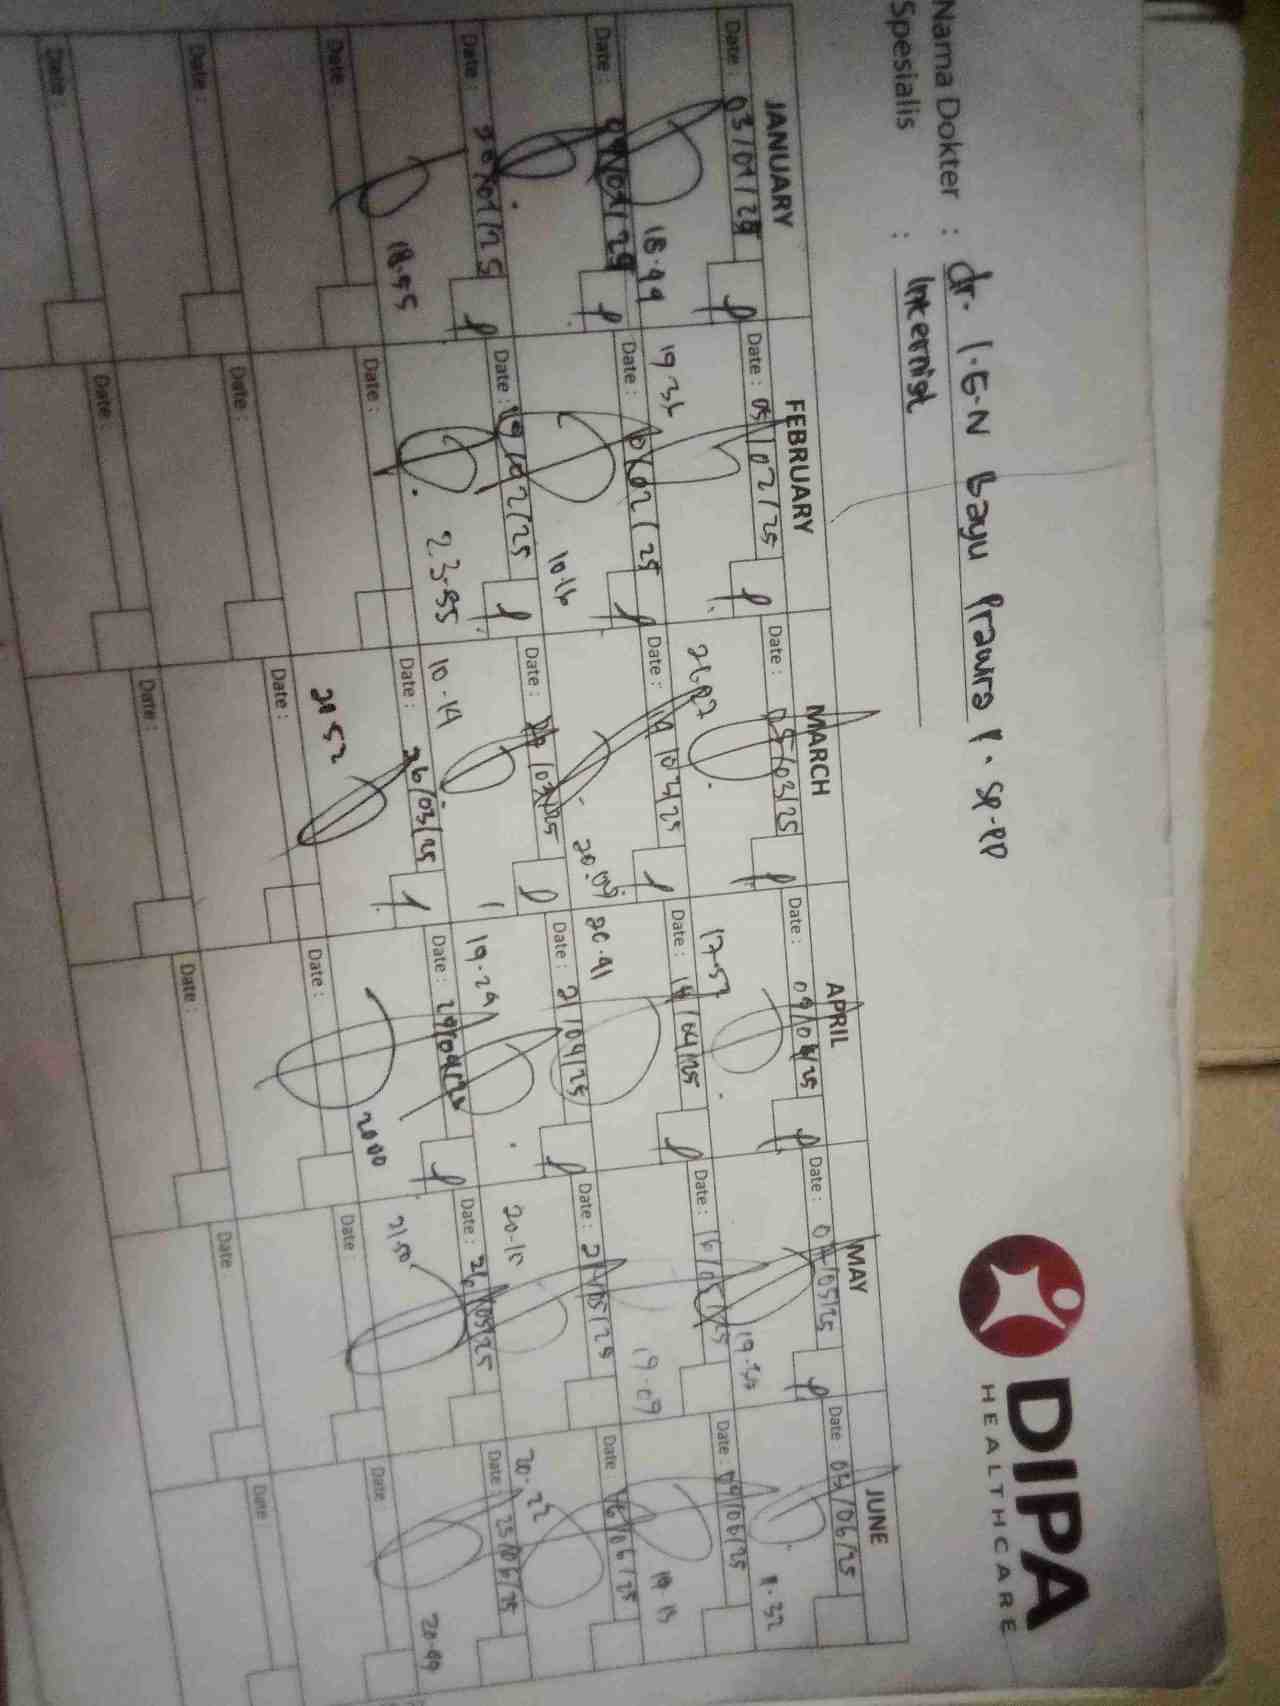 DIPA
HEALTHCARE
Nama Dokter : dr. I.G.N Bayu Prawira P. SP-PD
Spesialis : Internist
JANUARY FEBRUARY MARCH APRIL MAY JUNE
Date : 03/01/25 Date : 05/02/25 Date : 05/03/25 Date : 09/04/25 Date : 05/25 Date : 03/06/25
18.44 19.36 17.52 19.30
Date : 09/01/25 Date : /02/25 Date : 14/03/25 Date : 14/04/25 Date : 16/05/25 Date : 09/06/25
10.16 20.09 20.41 19.09 19.13
Date : /01/25 Date : 19/02/25 Date : /03/25 Date : 21/04/25 Date : 21/05/25 Date : 16/06/25
18.55 23.55 10.14 19.29 20.15 20.22
Date : Date : Date : 26/03/25 Date : 29/04/25 Date : 26/05/25 Date : 25/06/25
20.52 2000 21.50 20.49
Date : Date : Date : Date : Date Date
Date : Date : Date : Date : Date Date